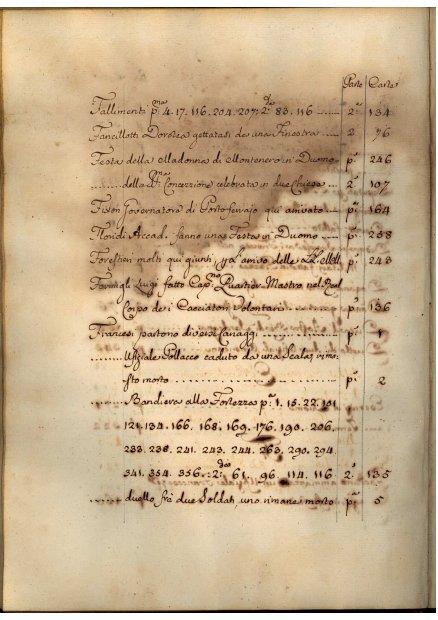 Parte Carte
Fallimenti p.ma 4. 17. 116. 204. 207: 2.da 83. 116 ...... 2.a 134
Fancillotti Dorotea gettatasi da una Finestra .... 2 76
Festa della Madonna di Montenero in Duomo p.a 246
......... della SS.ma Concezzione celebrata in due Chiese .. 2.a 107
Fixon Governatore di Portoferrajo qui arrivato ... p.a 164
Floridi Accad. fanno una Festa in Duomo ... p.a 258
Forestieri molti qui giunti p l'arrivo delle LL. MM. p.a 243
Luigi fatto Cap.no Quartier Mastro nel Real
Corpo dei Cacciatori Volontari ............ p.a 136
Francesi partono di qui ............ p.a 1
......... Uffiziale Pollacco caduto da una Scala, rima:
sto morto ............ p.a 2
......... Bandiera alla Fortezza p.a 1. 15. 22. 101
121. 134. 166. 168. 169. 176. 190. 206.
233. 238. 241. 243. 244. 263. 290. 294.
341. 354. 356.: 2.da 61. 96. 114. 116 2.a 135
......... duello frà due Soldati, uno rimane morto p.a 5